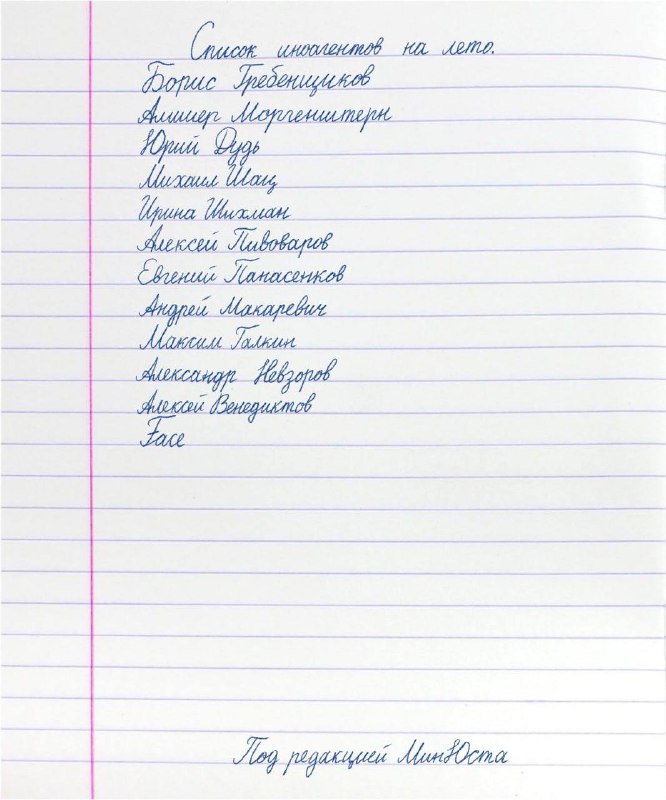 Список иноагентов на лето.
Борис Гребенщиков
Алишер Моргенштерн
Юрий Дудь
Михаил Шац
Ирина Шихман
Алексей Пивоваров
Евгений Панасенков
Андрей Макаревич
Максим Галкин
Александр Невзоров
Алексей Венедиктов
Face
Под редакцией МинЮста